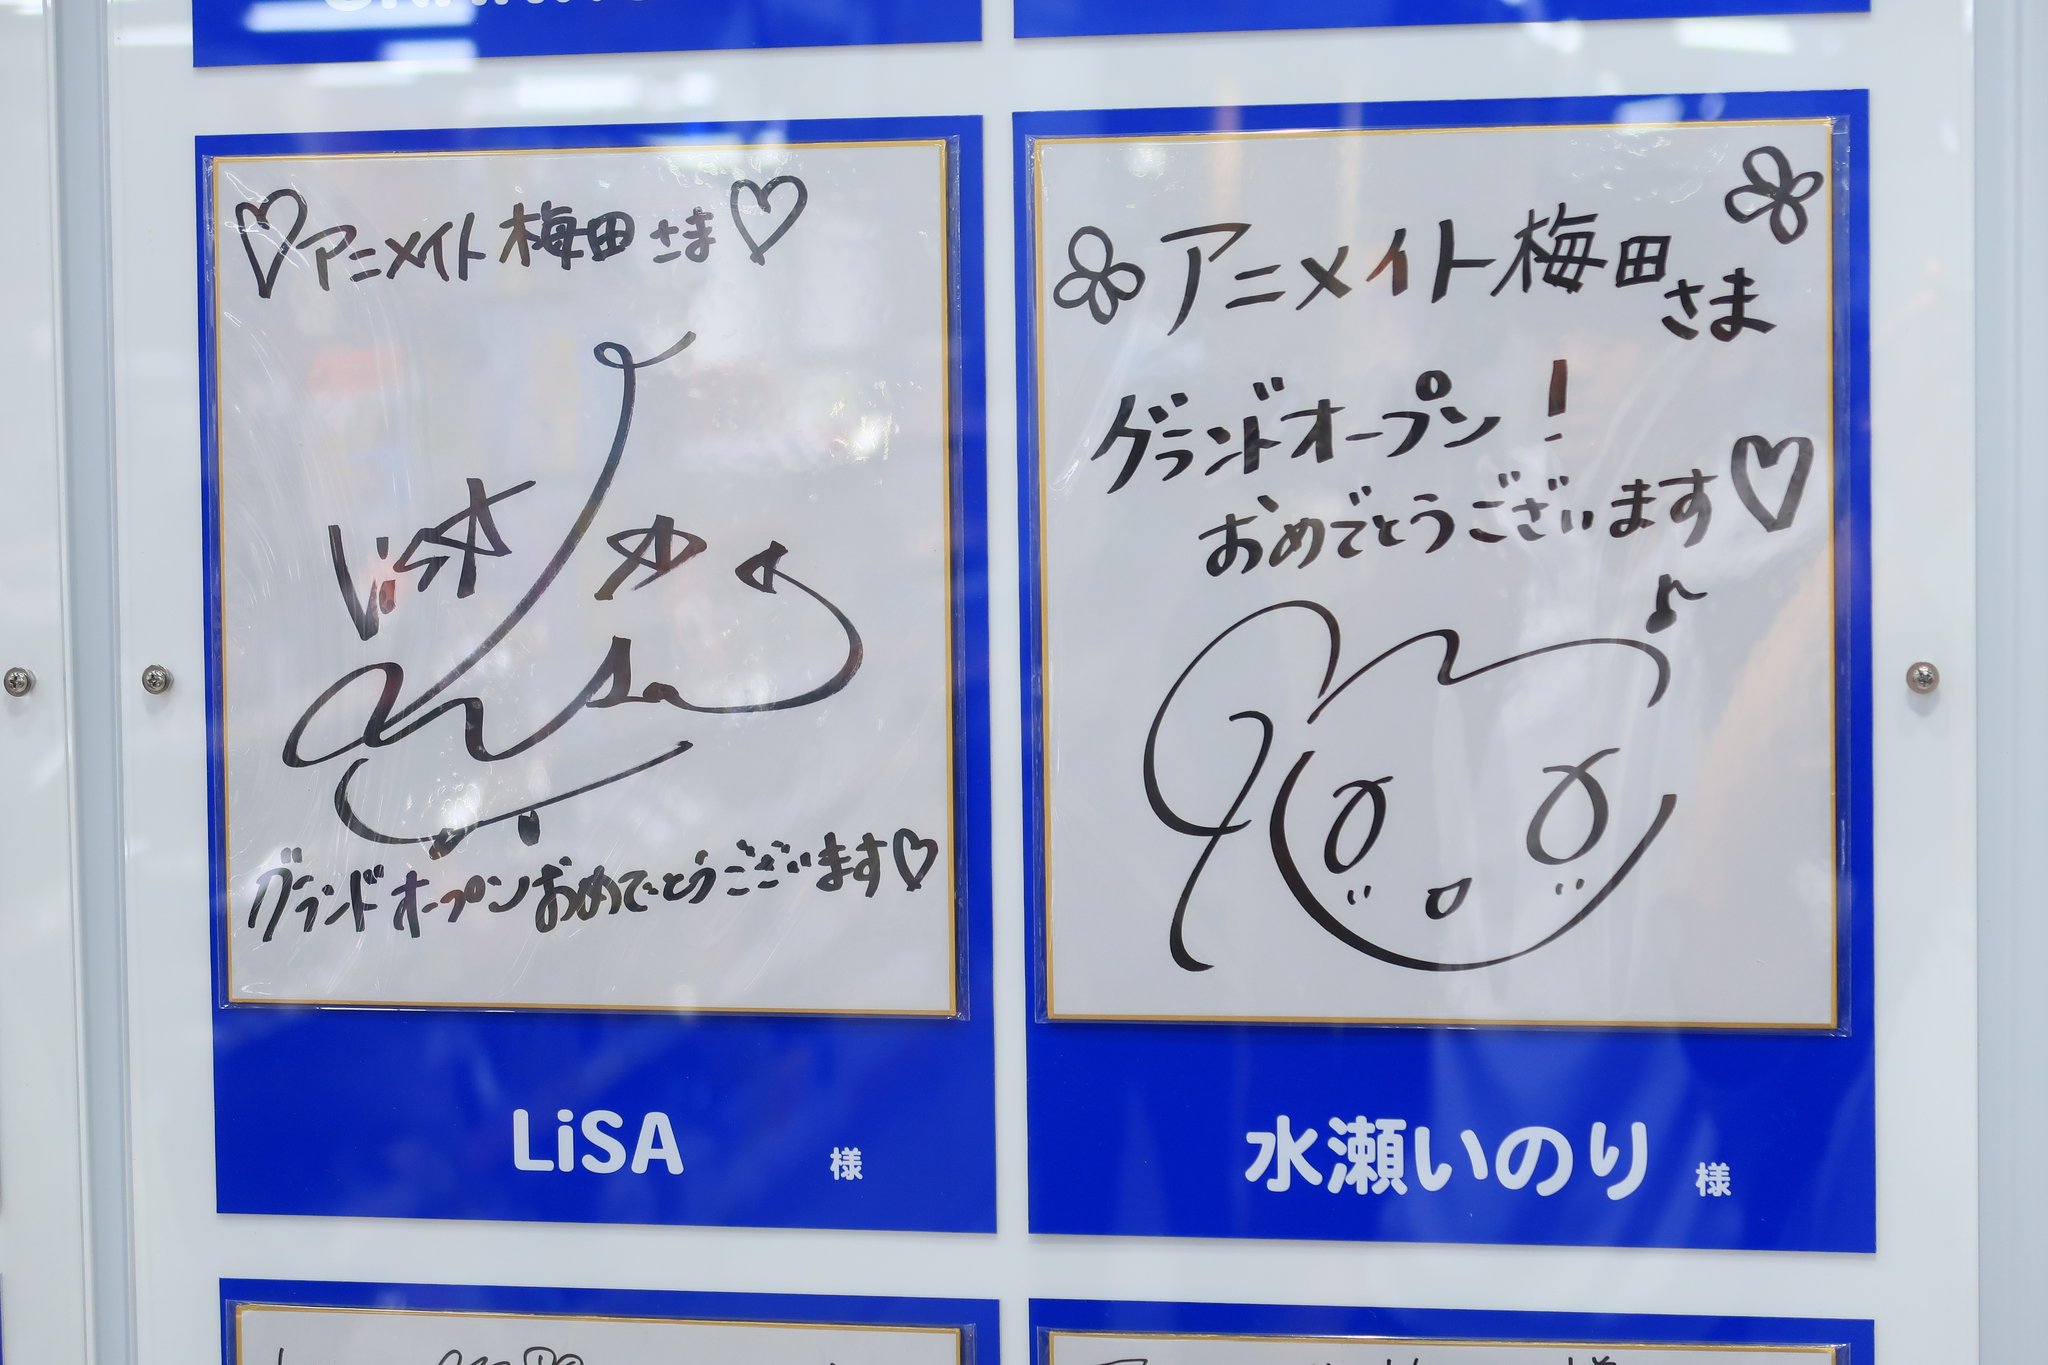 アニメイト梅田さま
LiSA
グランドオープンおめでとうございます
LiSA 様
アニメイト梅田さま
グランドオープン!
おめでとうございます
水瀬いのり 様